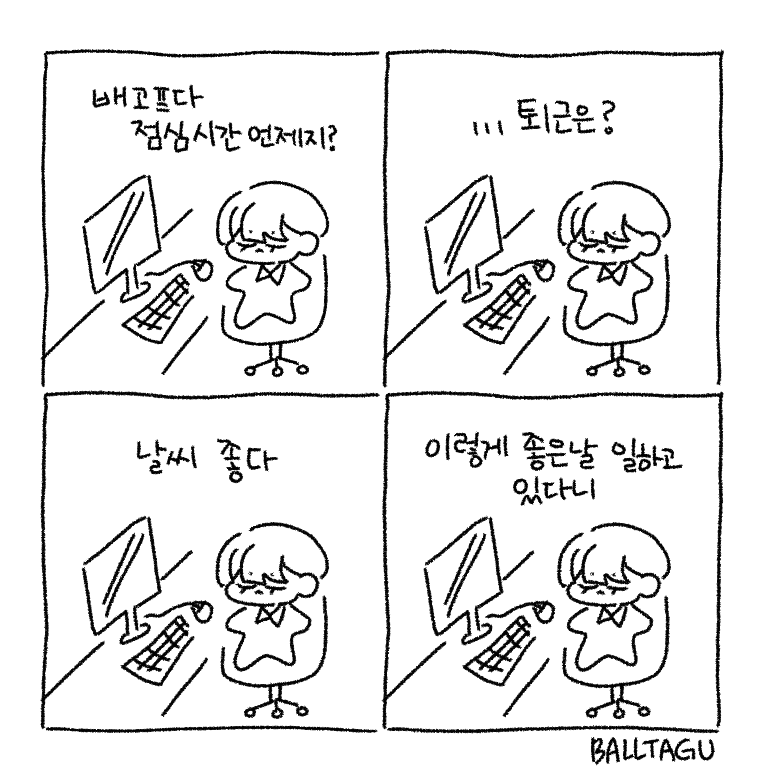 배고프다
점심시간 언제지?
... 퇴근은?
날씨 좋다
이렇게 좋은날 일하고
있다니
BALLTAGU